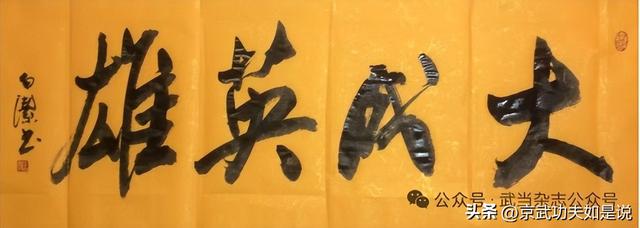 大成英雄
白潔书
公众号·武当杂志公众号
头条 @京武功夫如是说